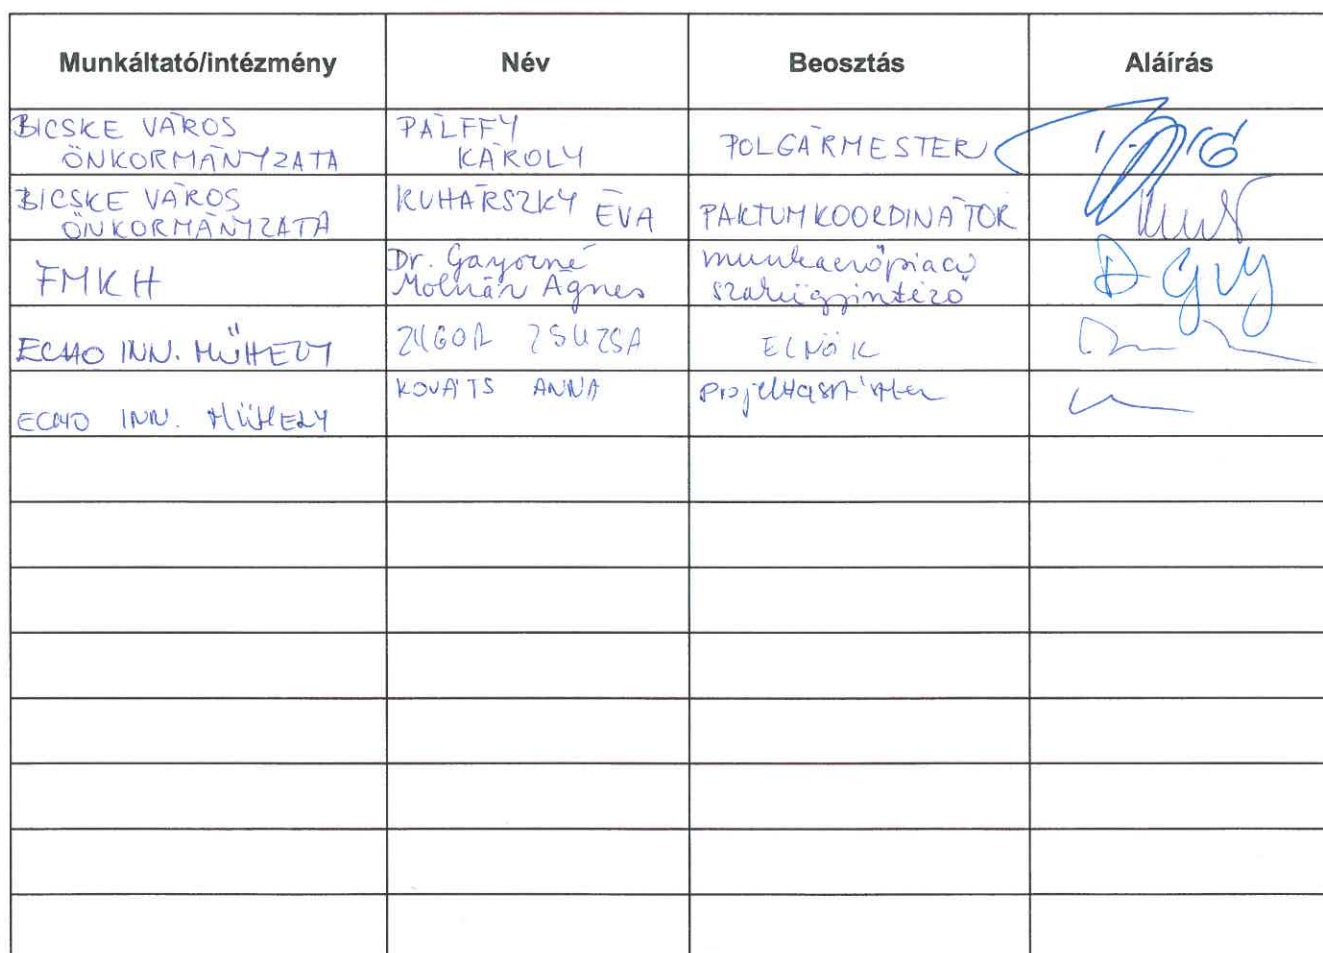 Munkáltató/intézmény Név Beosztás Aláírás
BICSKE VÁROS
ÖNKORMÁNYZATA
PÁLFFY
KÁROLY
POLGÁRMESTER
BICSKE VÁROS
ÖNKORMÁNYZATA
KUHÁRSZKY ÉVA
PAKTUMKOORDINÁTOR
FMKH
Dr. Gayorné
Molnár Ágnes
munkaerőpiaci
szakügyintéző
ECHO INN. MŰHELY
ZUGOR ZSUZSA
ELNÖK
ECHO INN. MŰHELY
KOVÁTS ANNA